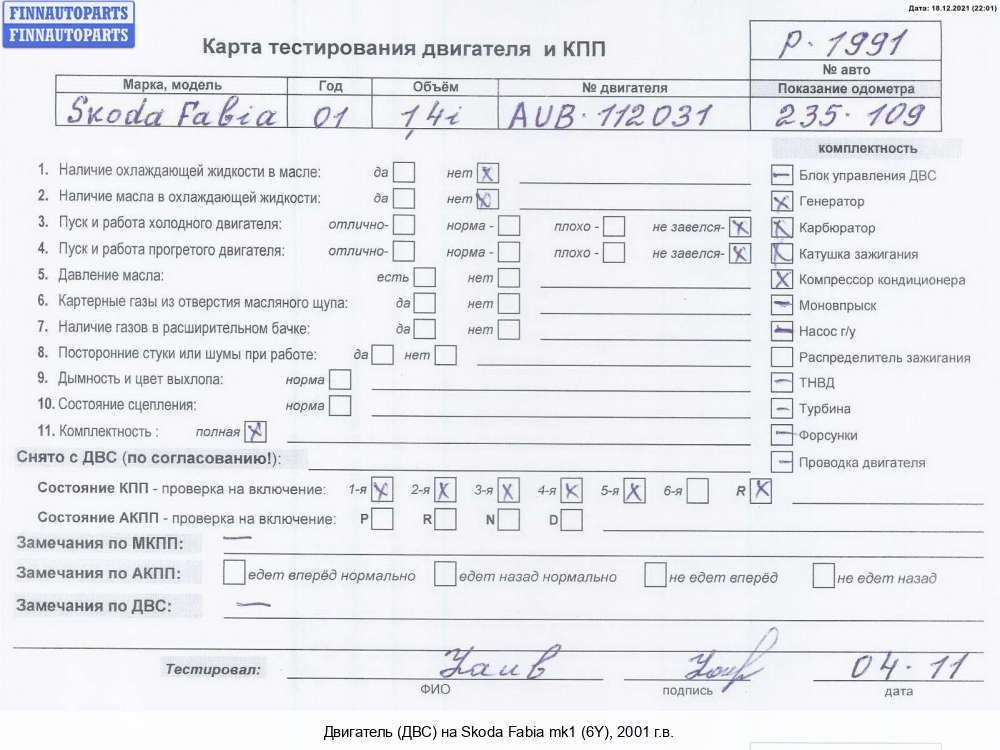 FINNAUTOPARTS
FINNAUTOPARTS
Дата: 18.12.2021 (22:01)
Карта тестирования двигателя и КПП
р. 1991
№ авто
Марка, модель Год Объём № двигателя Показание одометра
Skoda Fabia 01 1,4i AUB. 112031 235. 109
комплектность
1. Наличие охлаждающей жидкости в масле: да нет x
Блок управления ДВС
2. Наличие масла в охлаждающей жидкости: да нет x
Генератор
3. Пуск и работа холодного двигателя: отлично- норма - плохо - не завелся- x
Карбюратор
4. Пуск и работа прогретого двигателя: отлично- норма - плохо - не завелся- x
Катушка зажигания
5. Давление масла: есть нет
Компрессор кондиционера
6. Картерные газы из отверстия масляного щупа: да нет
Моновпрыск
7. Наличие газов в расширительном бачке: да нет
Насос г/у
8. Посторонние стуки или шумы при работе: да нет
Распределитель зажигания
9. Дымность и цвет выхлопа: норма
ТНВД
10. Состояние сцепления: норма
Турбина
11. Комплектность : полная x
Форсунки
Снято с ДВС (по согласованию!):
Проводка двигателя
Состояние КПП - проверка на включение: 1-я x 2-я x 3-я x 4-я x 5-я x 6-я R x
Состояние АКПП - проверка на включение: P R N D
Замечания по МКПП: —
Замечания по АКПП: едет вперёд нормально едет назад нормально не едет вперёд не едет назад
Замечания по ДВС: —
Тестировал: 04. 11
ФИО подпись дата
Двигатель (ДВС) на Skoda Fabia mk1 (6Y), 2001 г.в.